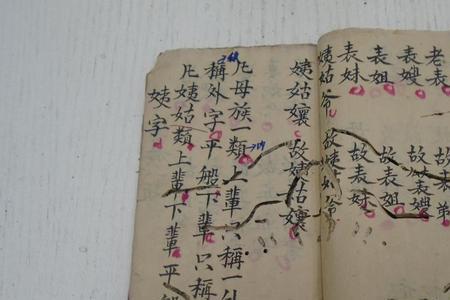 老表　故表弟
表嫂　故表嫂
表姐　故表姐
表妹　故表妹
姨姑爷　故姨姑爷
姨姑孃　故姨姑孃
凡母族一類上輩只稱一外
稱外字平般下輩只稱
凡姨姑類上輩下輩平般
姨字